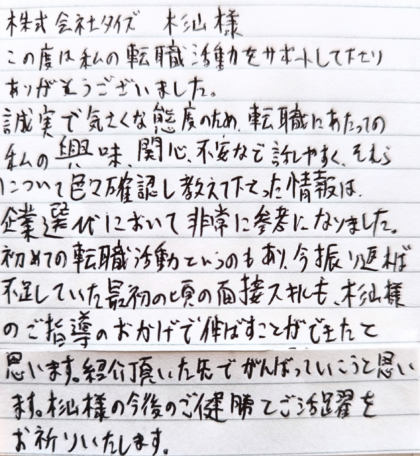 株式会社タイズ 杉山様
この度は私の転職活動をサポートして下さり
ありがとうございました。
誠実で気さくな態度のため、転職にあたっての
私の興味、関心、不安など話しやすく、それら
について色々確認し教えて下さった情報は、
企業選びにおいて非常に参考になりました。
初めての転職活動というのもあり、今振り返れば
不足していた最初の頃の面接スキルも、杉山様
のご指導のおかげで伸ばすことができたと
思います。紹介頂いた先でがんばっていこうと思い
ます。杉山様の今後のご健勝とご活躍を
お祈りいたします。